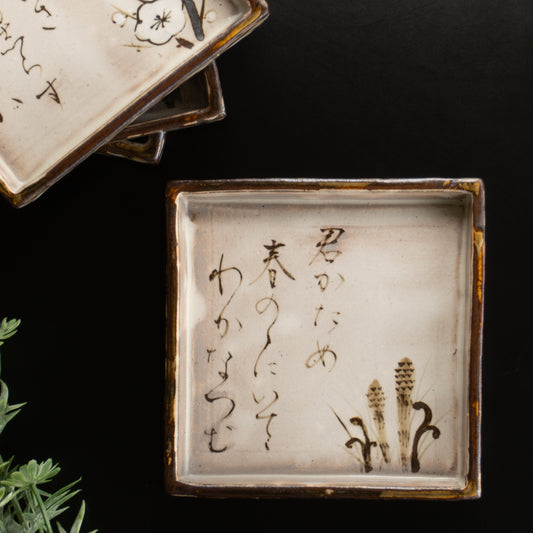 君かため
春のゝにいて
わかなつむ